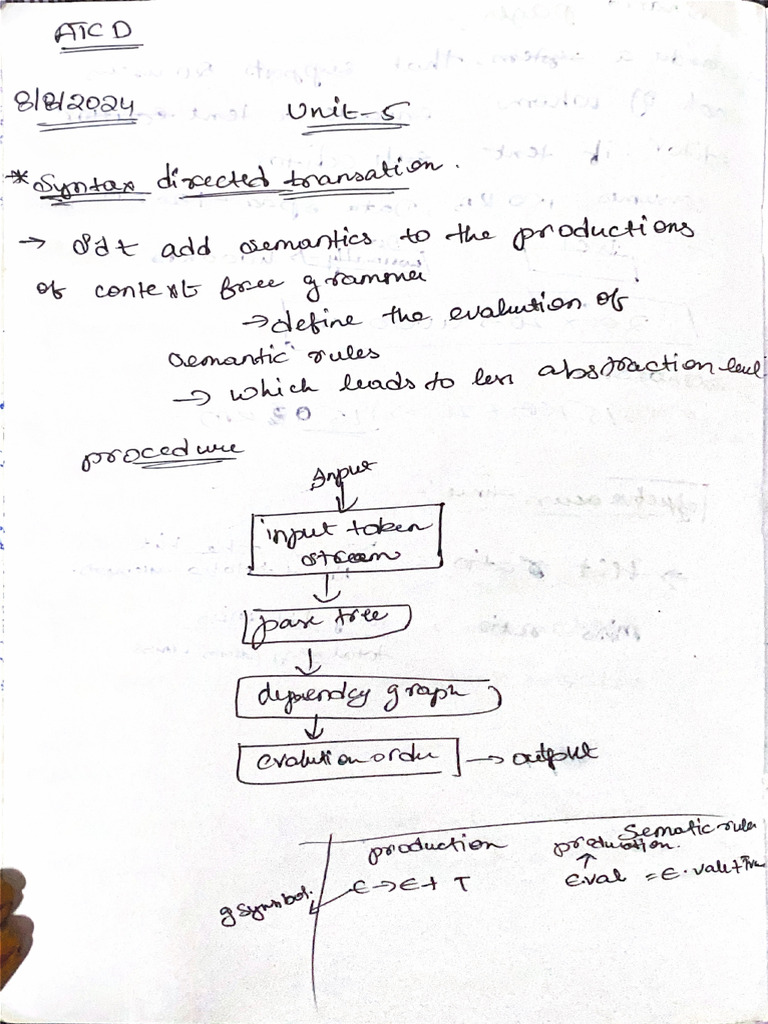 ATCD
8/8/2024
Unit-5
* Syntax directed transation.
→ Sdt add semantics to the productions
of context free grammer
→ define the evalution of
semantic rules
→ which leads to less abstraction level
procedure
Input
input token
stream
parse tree
dependcy graph
evalution order → output
Sematic rules
production production.
E → E + T E.val = E.val + T.va
g symbol.